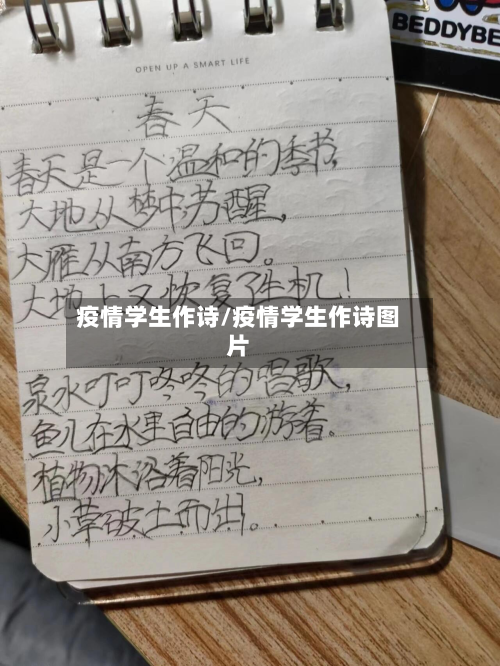 BEDDYBE
OPEN UP A SMART LIFE
春天
春天是一个温和的季节,
大地从梦中苏醒,
大雁从南方飞回。
大地上又恢复了生机!
疫情学生作诗/疫情学生作诗图
片
泉水叮叮咚咚的唱歌,
鱼儿在水里自由的游着。
植物沐浴着阳光,
小草破土而出。